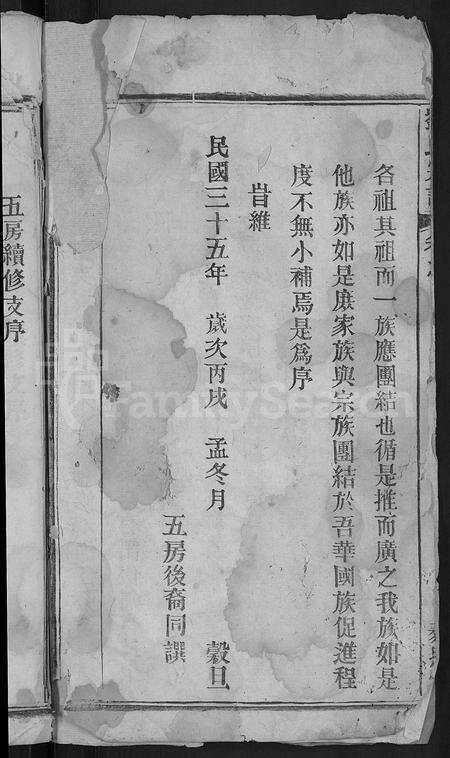 各祖其祖而一族應團結也循是推而廣之我族如是
他族亦如是庶家族與宗族團結於吾華國族促進程
度不無小補焉是爲序
旹維
民國三十五年　歲次丙戌　孟冬月　穀旦
五房後裔同譔
五房續修支序